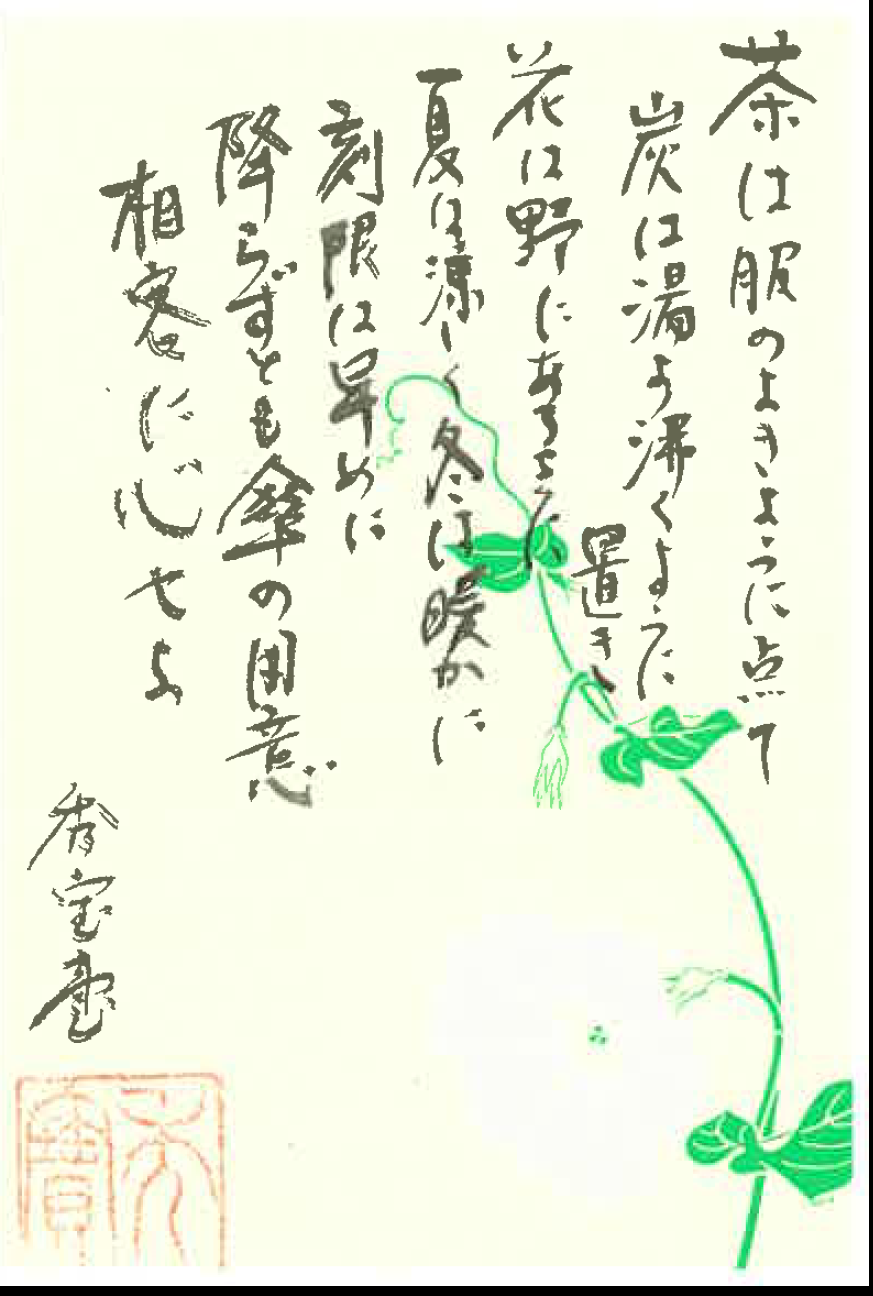 茶は服のよきように点て
炭は湯の沸くように
置き
花は野にあるように
夏は涼しく冬は暖かに
刻限は早めに
降らずとも傘の用意
相客に心せよ
香宝